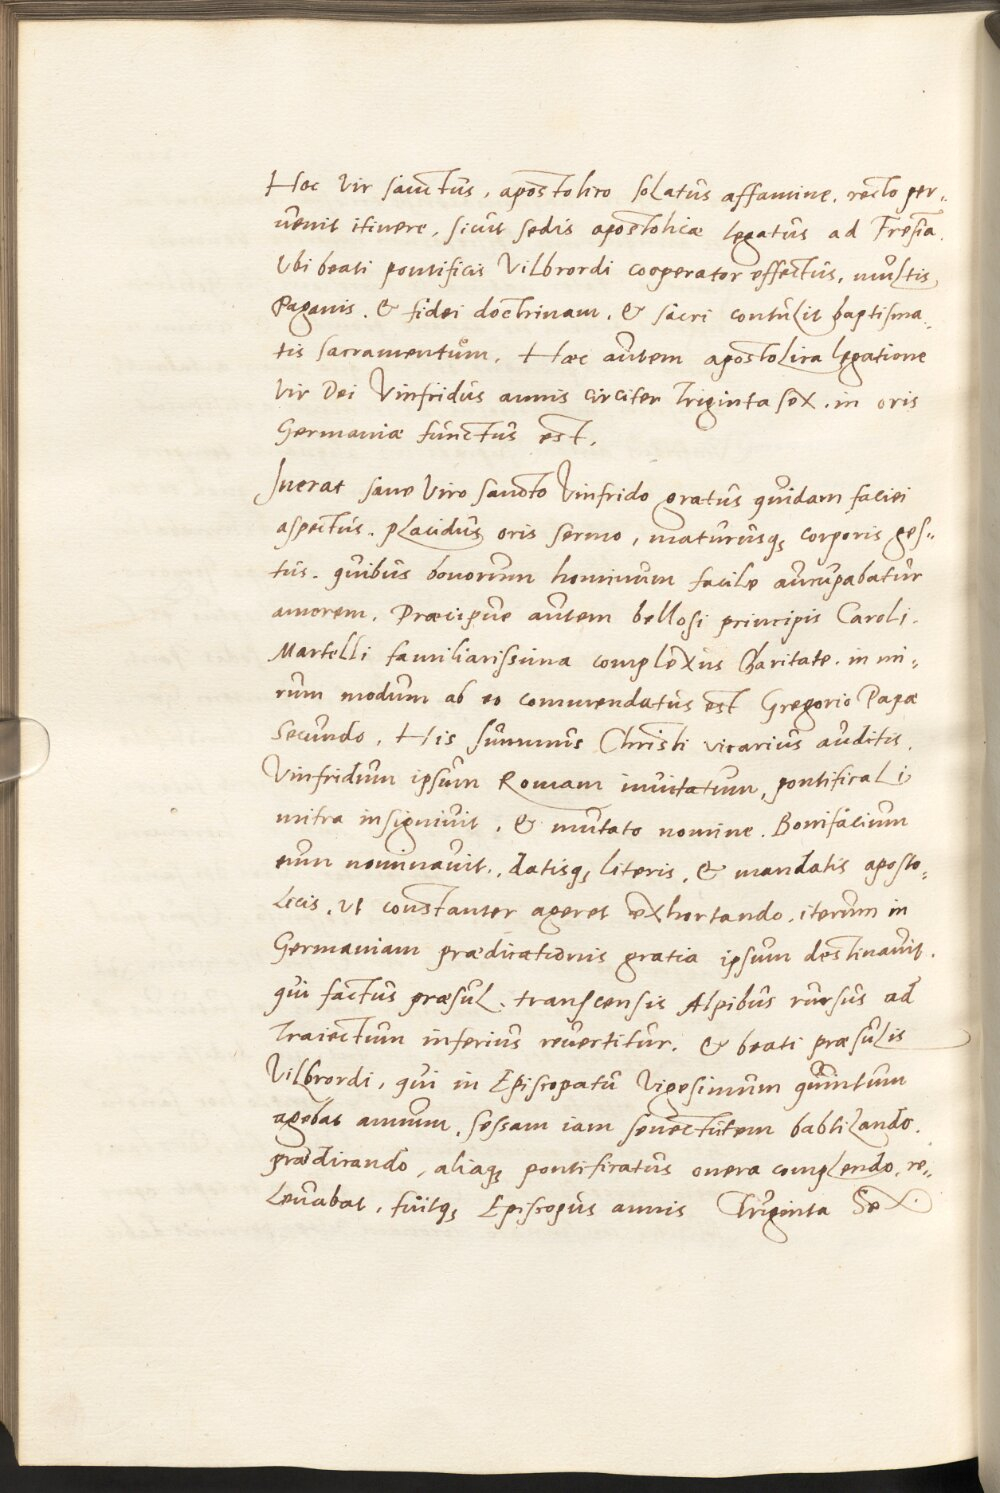 Hoc Vir sanctus, apostolico solatus affamine, recto per-
uenit itinere, sicut sedis apostolicæ legatus ad Fresia.
Vbi beati pontificis Vilbrordi cooperator effectus, multis
Paganis, & fidei doctrinam, & sacri contulit baptisma-
tis sacramentum. Hac autem apostolica legatione
Vir Dei Vinfridus annis circiter Triginta sex, in oris
Germaniæ functus est.
Inerat sane Viro sancto Vinfrido gratus quidam faciei
aspectus, placidus oris sermo, maturusq; corporis ges-
tus, quibus bonorum hominum facile aucupabatur
amorem. Præcipue autem bellosi principis Caroli
Martelli familiarissima complexus charitate, in mi-
rum modum ab eo commendatus est Gregorio Papæ
Secundo. His summus Christi vicarius auditis,
Vinfridum ipsum Romam inuitatum, pontificali
mitra insigniuit, & mutato nomine, Bonifacium
eum nominauit, datisq; literis, & mandatis aposto-
licis, Vt constanter ageret exhortando, iterum in
Germaniam prædicationis gratia ipsum destinauit.
qui factus præsul, transcensis Alpibus rursus ad
Traiectum inferius reuertitur, & beati præsulis
Vilbrordi, qui in Episcopatu Vigesimum quintum
agebat annum, sessam iam senectutem babtizando,
prædicando, aliaq; pontificatus onera complendo, re-
leuabat, fuitq; Episcopus annis Triginta Sex.